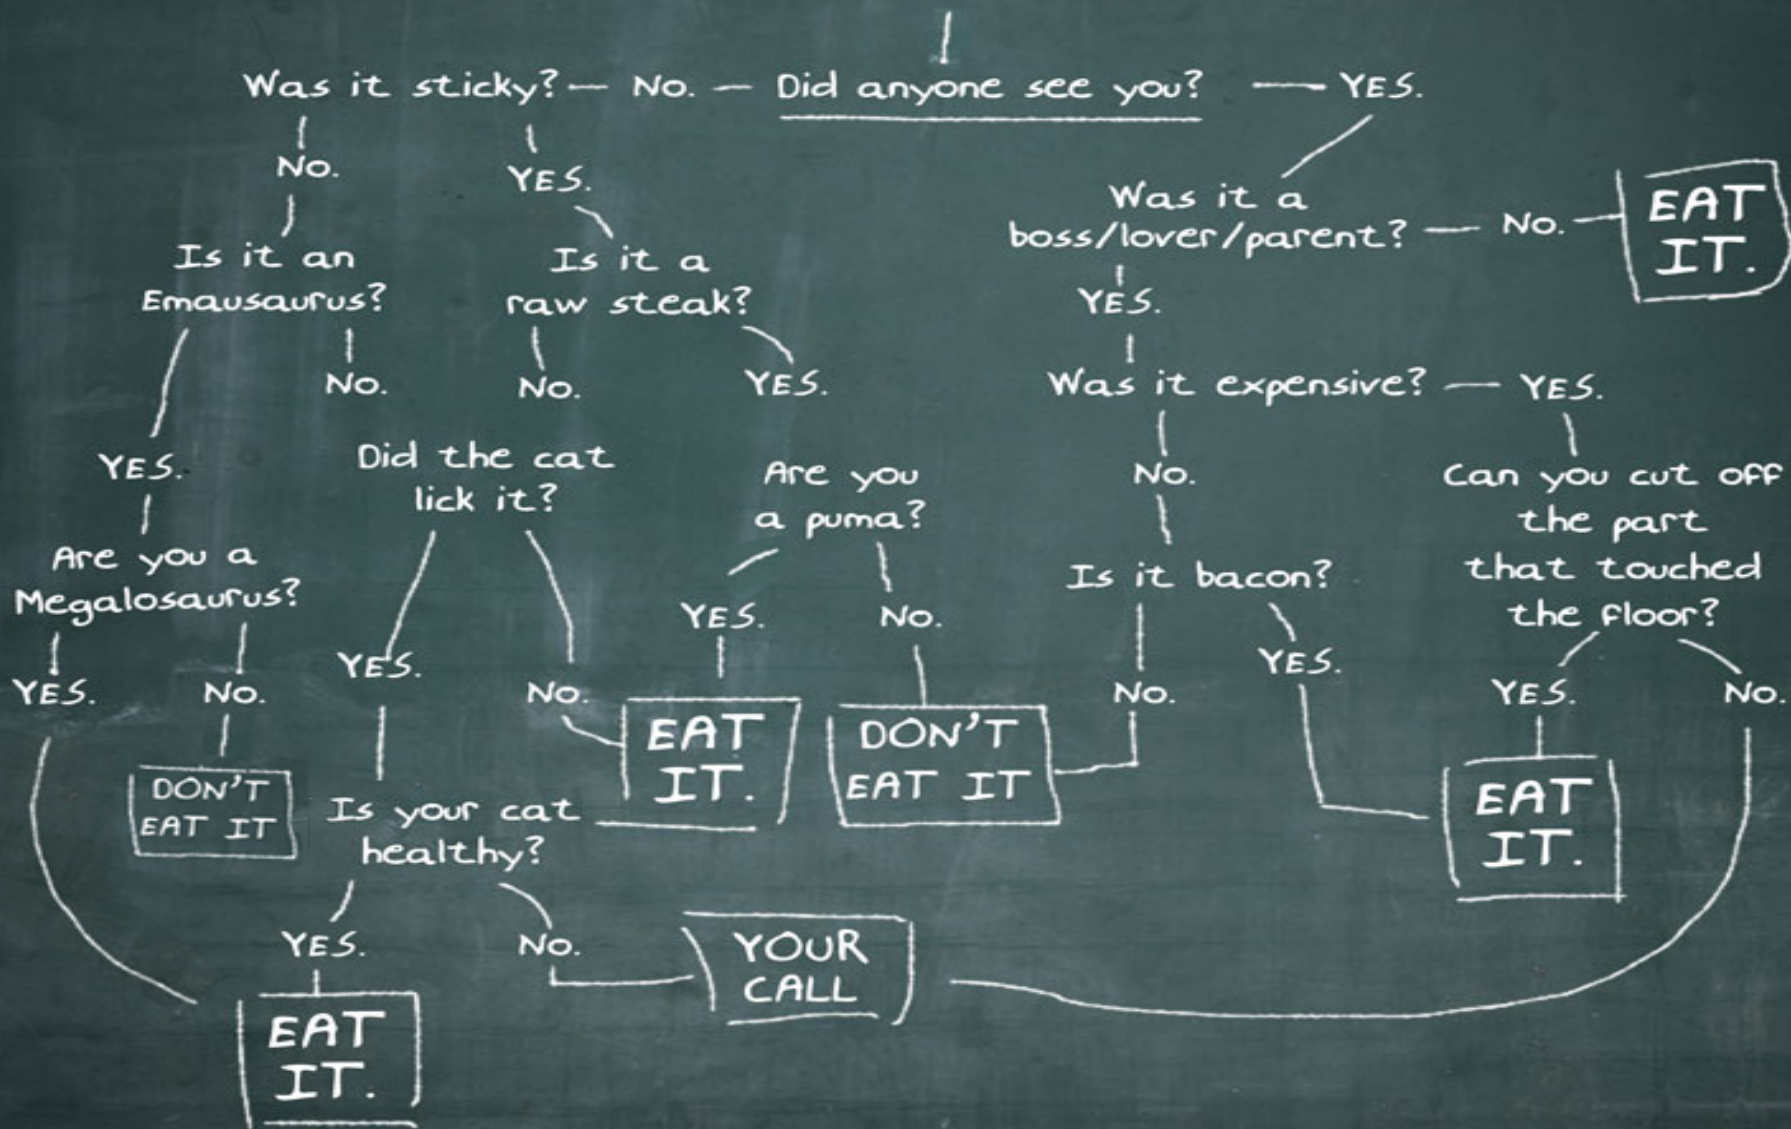 Was it sticky? — No. — Did anyone see you? — YES.
No.
YES.
Was it a
boss/lover/parent? — No.
EAT
IT.
Is it an
Emausaurus?
Is it a
raw steak?
YES.
No.
No.
YES.
Was it expensive? — YES.
YES.
Did the cat
lick it?
Are you
a puma?
No.
Can you cut off
the part
that touched
the floor?
Are you a
Megalosaurus?
Is it bacon?
YES.
No.
YES.
No.
YES.
No.
YES.
No.
YES.
No.
YES.
No.
DON'T
EAT IT
EAT
IT.
DON'T
EAT IT
EAT
IT.
Is your cat
healthy?
YES.
No.
YOUR
CALL
EAT
IT.